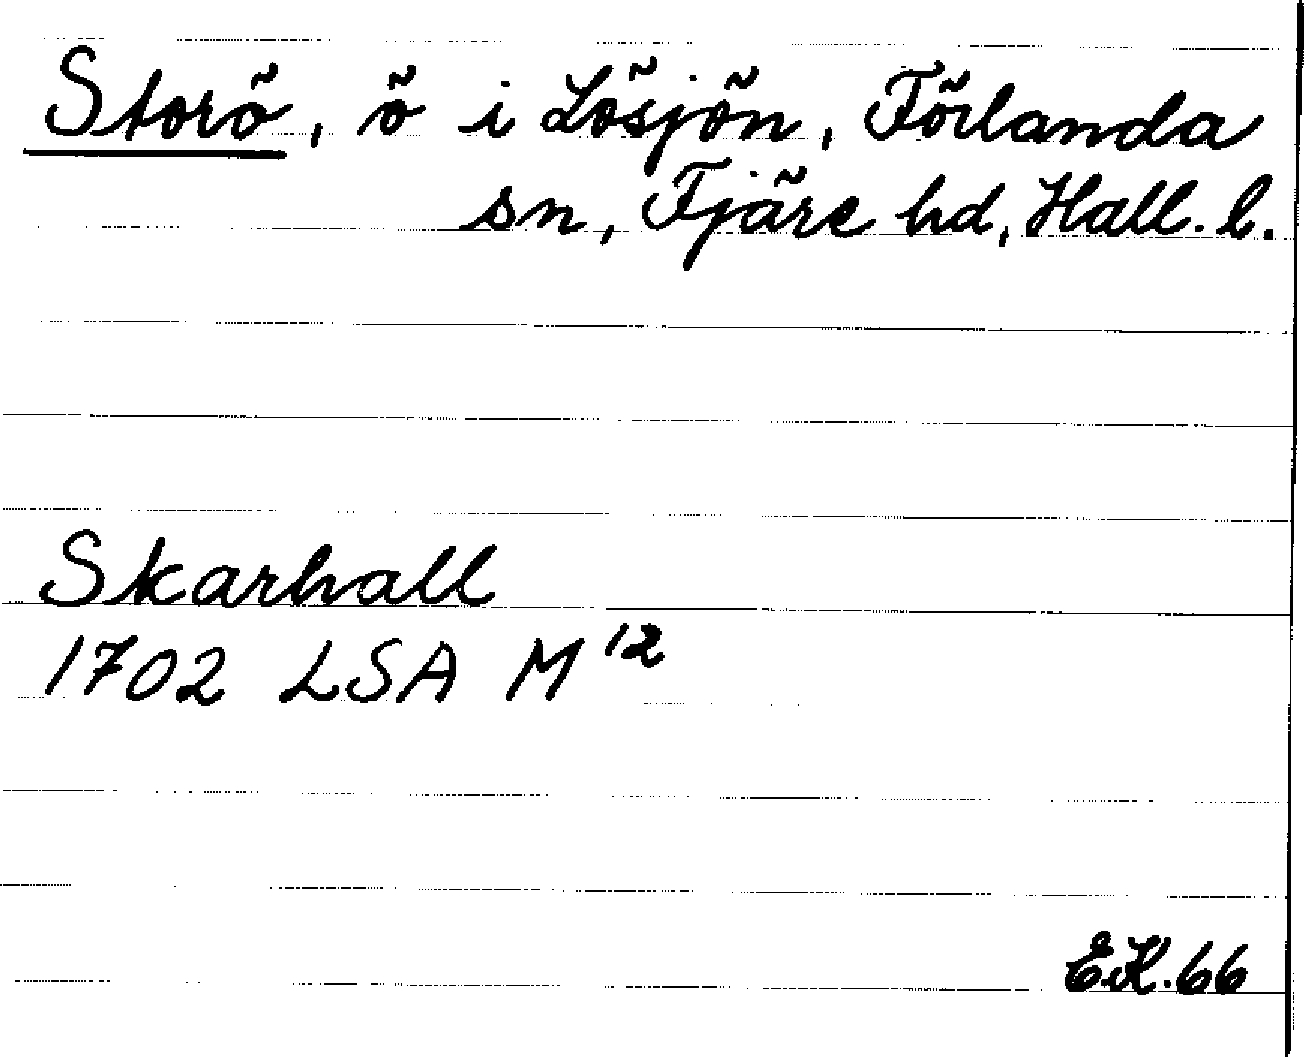 Storö, ö i Lösjön, Förlanda
sn, Fjäre hd, Hall. l.
Skarhall
1702 LSA M 12
E.K. 66